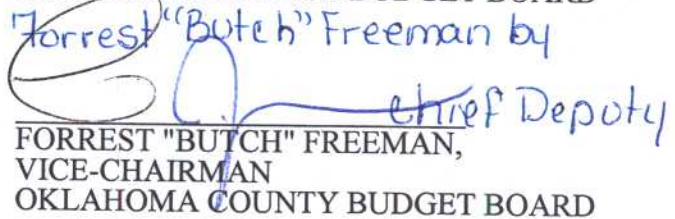 Forrest "Butch" Freeman by
Chief Deputy
FORREST "BUTCH" FREEMAN,
VICE-CHAIRMAN
OKLAHOMA COUNTY BUDGET BOARD